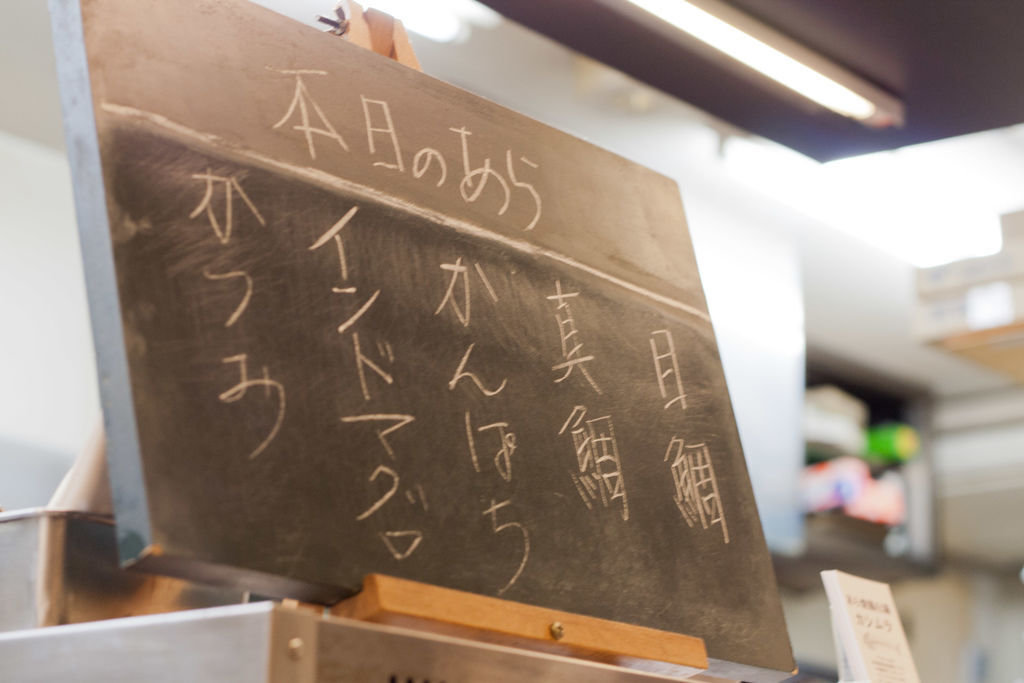 本日のあら
目鯛
真鯛
かんぱち
インドマグロ
かつお
カシムラ